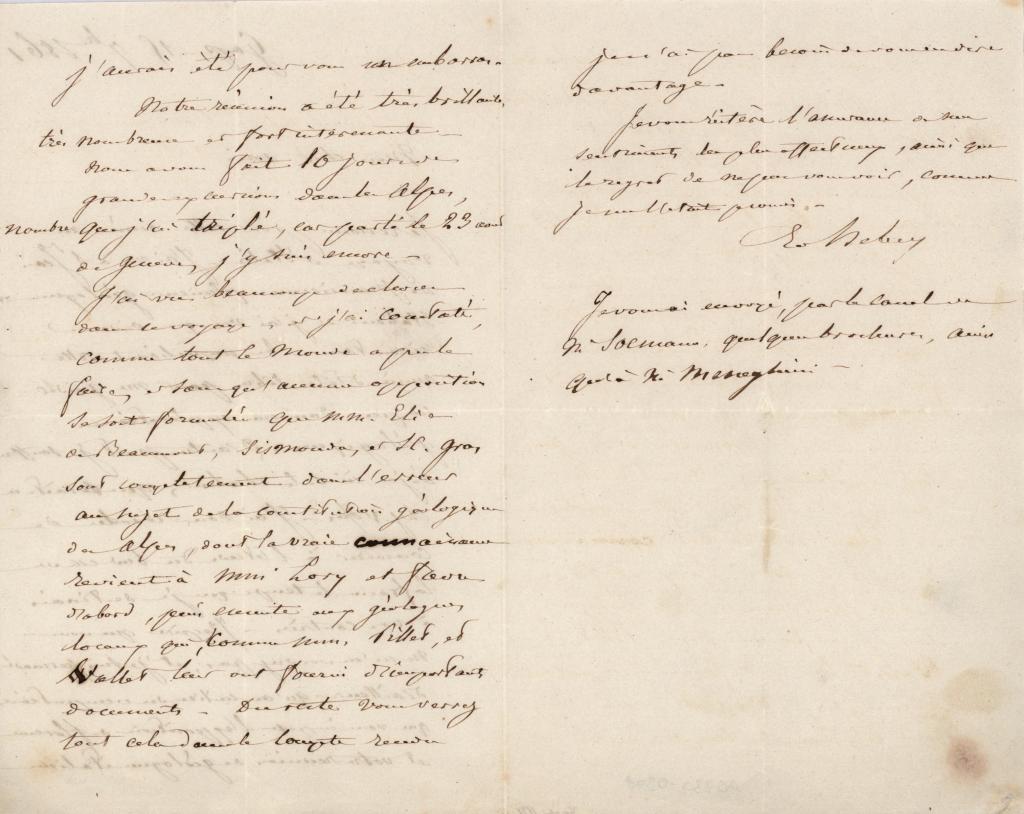 j'aurais été pour vous un embarras.
Notre réunion a été très brillante,
très nombreuse et fort intéressante –
Nous avons fait 10 jours de
grandes excursions dans les Alpes,
nombre que j'ai triplé, car parti le 23 août
de Genève, j'y suis encore –
J'ai vu beaucoup de choses
dans ce voyage, et j'ai constaté,
comme tout le monde a pu le
faire, et sans qu'aucune opposition
se soit formulée que MM. Elie
de Beaumont, Sismonda, et Sc. Gras
sont complètement dans l'erreur
au sujet de la constitution géologique
des Alpes, dont la vraie connaissance
revient à MM. Lory et Favre
d'abord, puis ensuite aux géologues
locaux qui, comme MM. Pillet, et
Vallet leur ont fourni d'importants
documents – Du reste vous verrez
tout cela dans le compte rendu
je n'ai pas besoin de vous en dire
davantage –
Je vous réitère l'assurance de mes
sentiments les plus affectueux, ainsi que
le regret de ne pas vous voir, comme
je me l'étais promis. –
Ed Hébert
Je vous ai envoyé, par le canal de
Mr Soemann, quelques brochures, ainsi
qu'à Mr Meneghini –